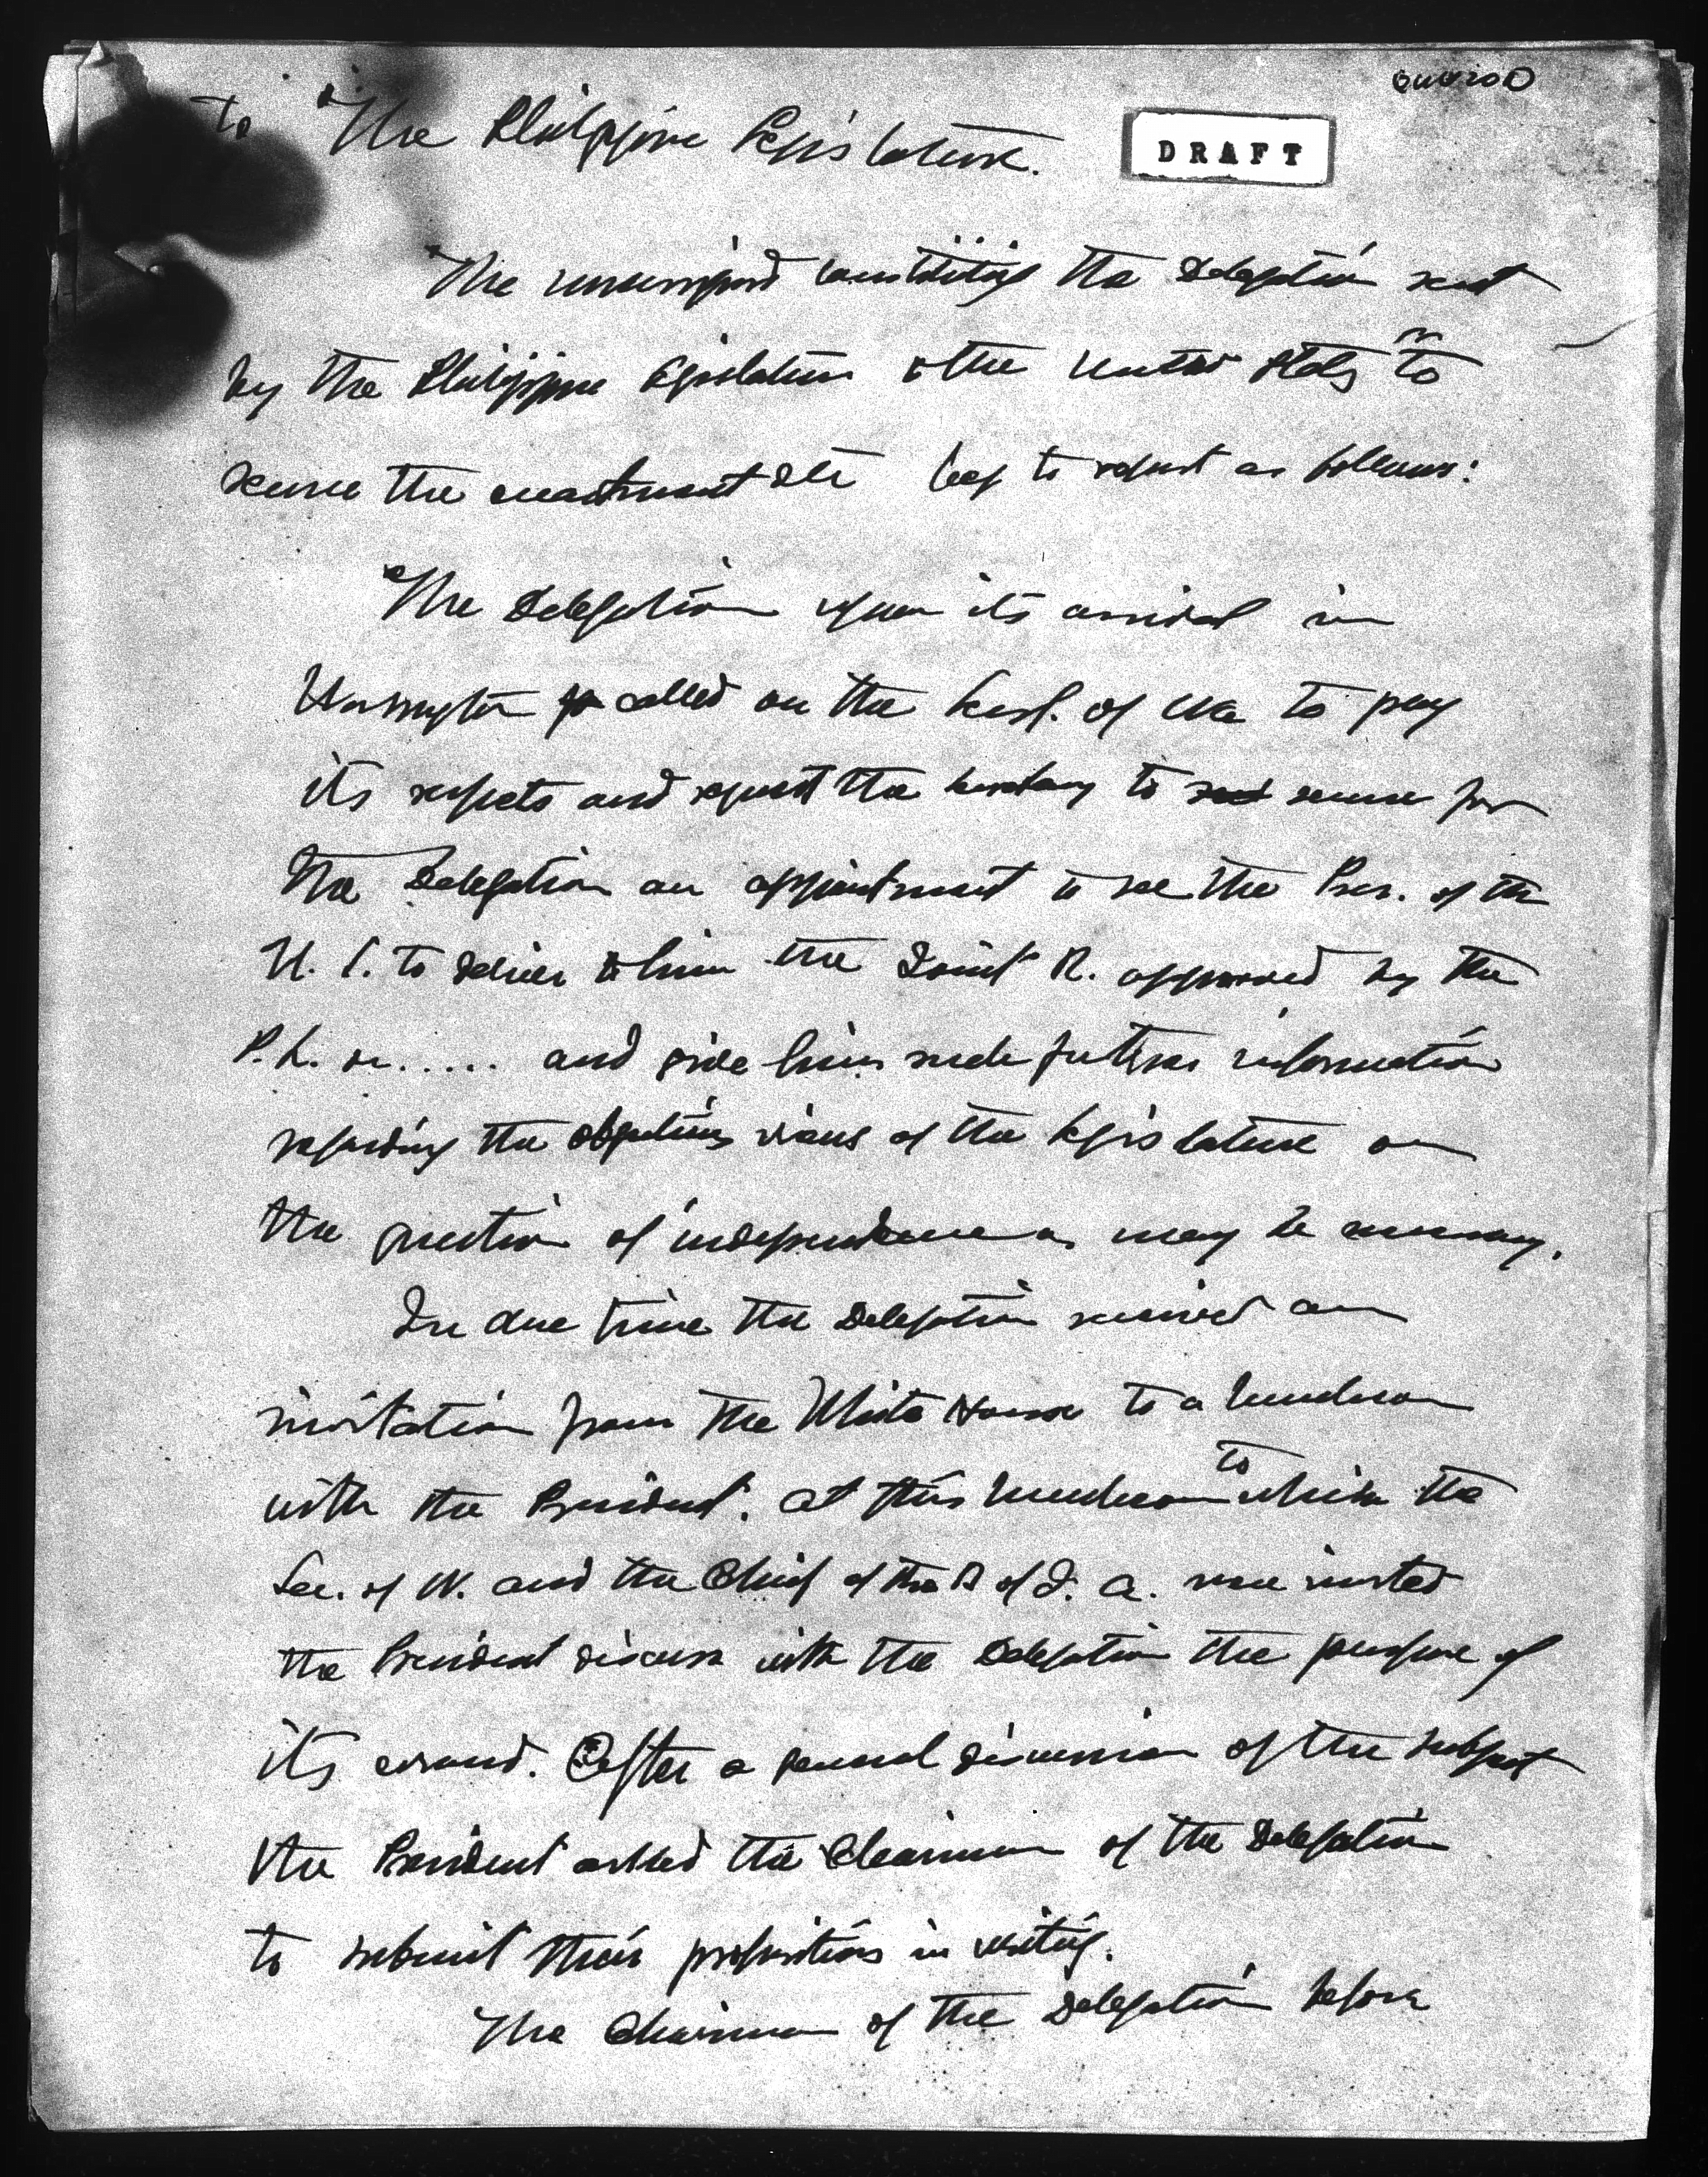 To The Philippine Legislature.
DRAFT
The undersigned constituting the Delegation sent
by the Philippine Legislature to the United States to
secure the enactment etc beg to report as follows:
The Delegation upon its arrival in
Washington called on the Sec. of War to pay
its respects and request the Secretary to secure for
the Delegation an appointment to see the Pres. of the
U. S. to deliver to him the Joint R. approved by the
P. L. on ..... and give him such further information
regarding the views of the Legislature on
the question of independence as may be necessary.
In due time the Delegation received an
invitation from the White House to a luncheon
with the President. At this luncheon to which the
Sec. of W. and the Chief of the B of I. A. were invited
the President discuss with the Delegation the purpose of
its errand. After a general discussion of the subject
the President asked the Chairman of the Delegation
to submit their propositions in writing.
The Chairman of the Delegation before